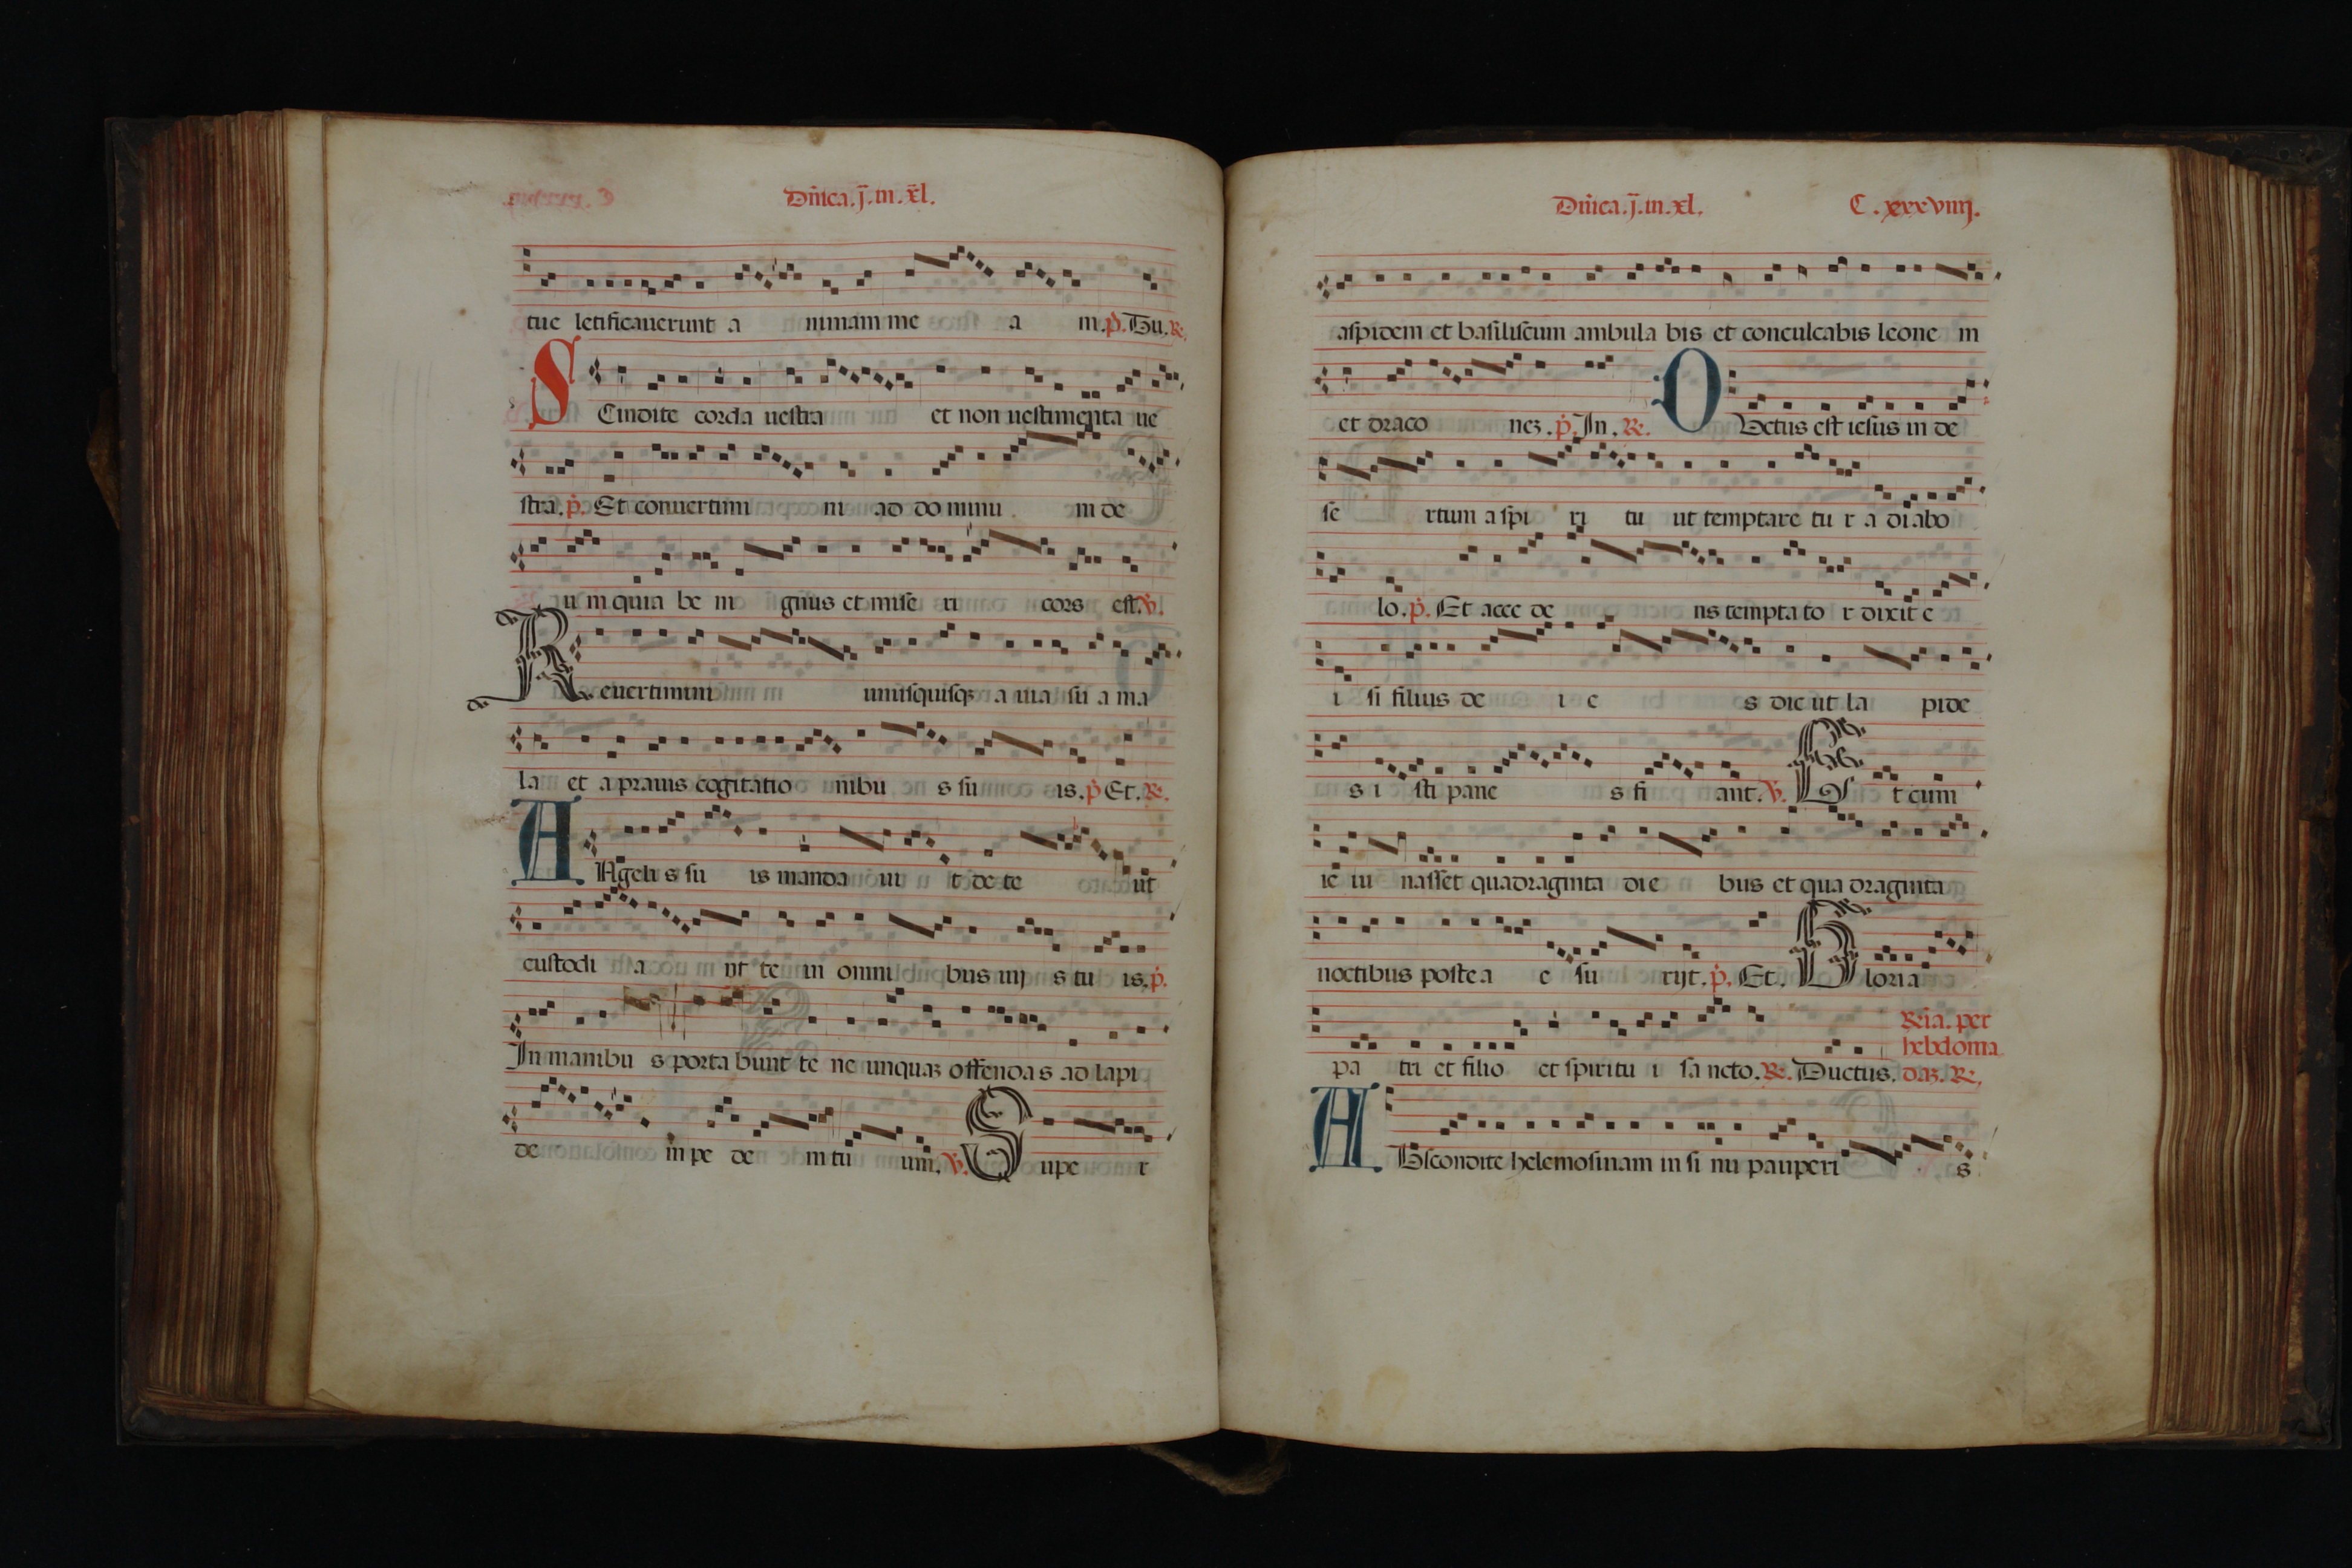 Dñica.j̄.in.x̄l.
tue letificauerunt a nimam me a m.p̄.Tu.R̄.
SCindite corda uestra et non uestimenta ue
stra.p̄.Et conuertimi ni ad do minu m de
u m quia be ni gnus et mise ri cors est.v̄.
Reuertimini unusquisqꝫ a uia su a ma
la et a prauis cogitatio nibu s su is.p̄ Et.R̄.
ANgeli s su is manda ui t de te ut
custodi a nt te in omni bus uij s tu is.p̄.
In manibu s porta bunt te ne unquaꝫ offenda s ad lapi
de m pe de m tu um.v̄. Supe r
Dñica.j̄.in.xl. C.xxxviiij.
aspidem et basiliscum ambula bis et conculcabis leone m
et draco nez.p̄.In.R̄. DVctus est iesus in de
se rtum a spi ri tu ut temptare tu r a diabo
lo.p̄.Et acce de ns tempta to r dixit e
i si filius de i e s dic ut la pide
s i sti pane s fi ant.v̄. Et cum
ie iu nasset quadraginta di e bus et qua draginta
noctibus poste a e su rijt.p̄.Et. Gloria
pa tri et filio et spiritu i sa ncto.R̄.Ductus.
R̄ia.per
hebdoma
daꝫ.R̄.
ABscondite helemosinam in si nu pauperi s